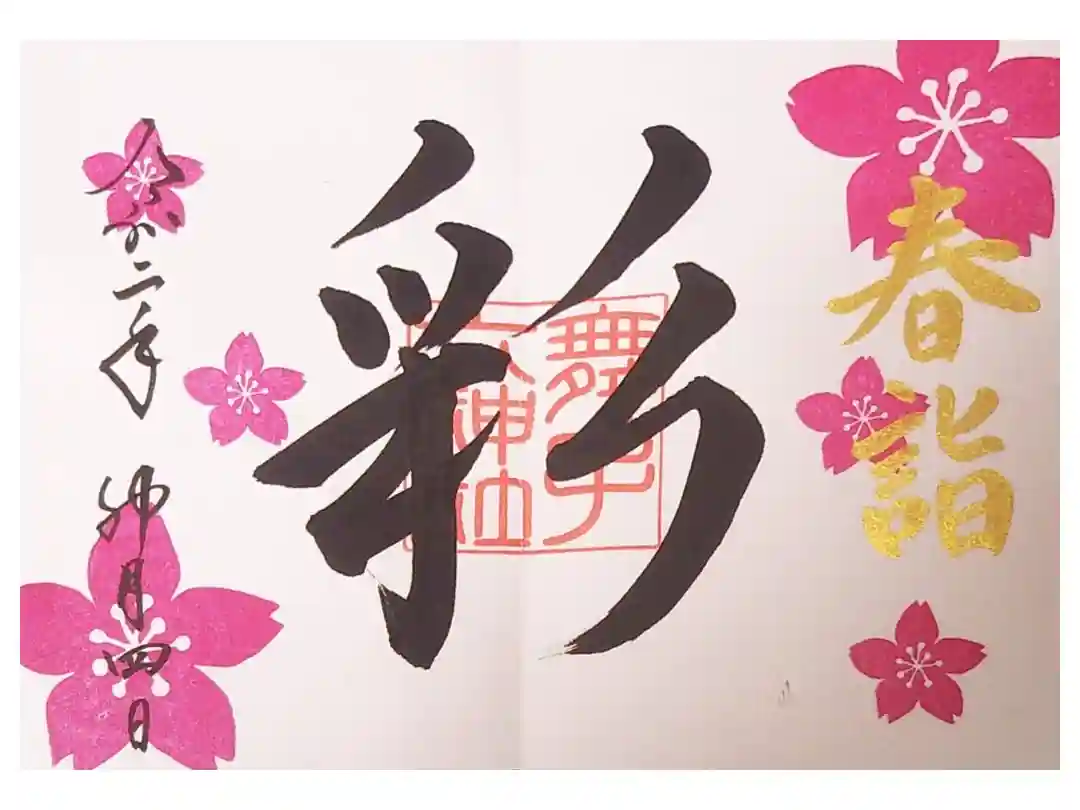 春詣
彩
舞子
六神社
令和二年 卯月四日